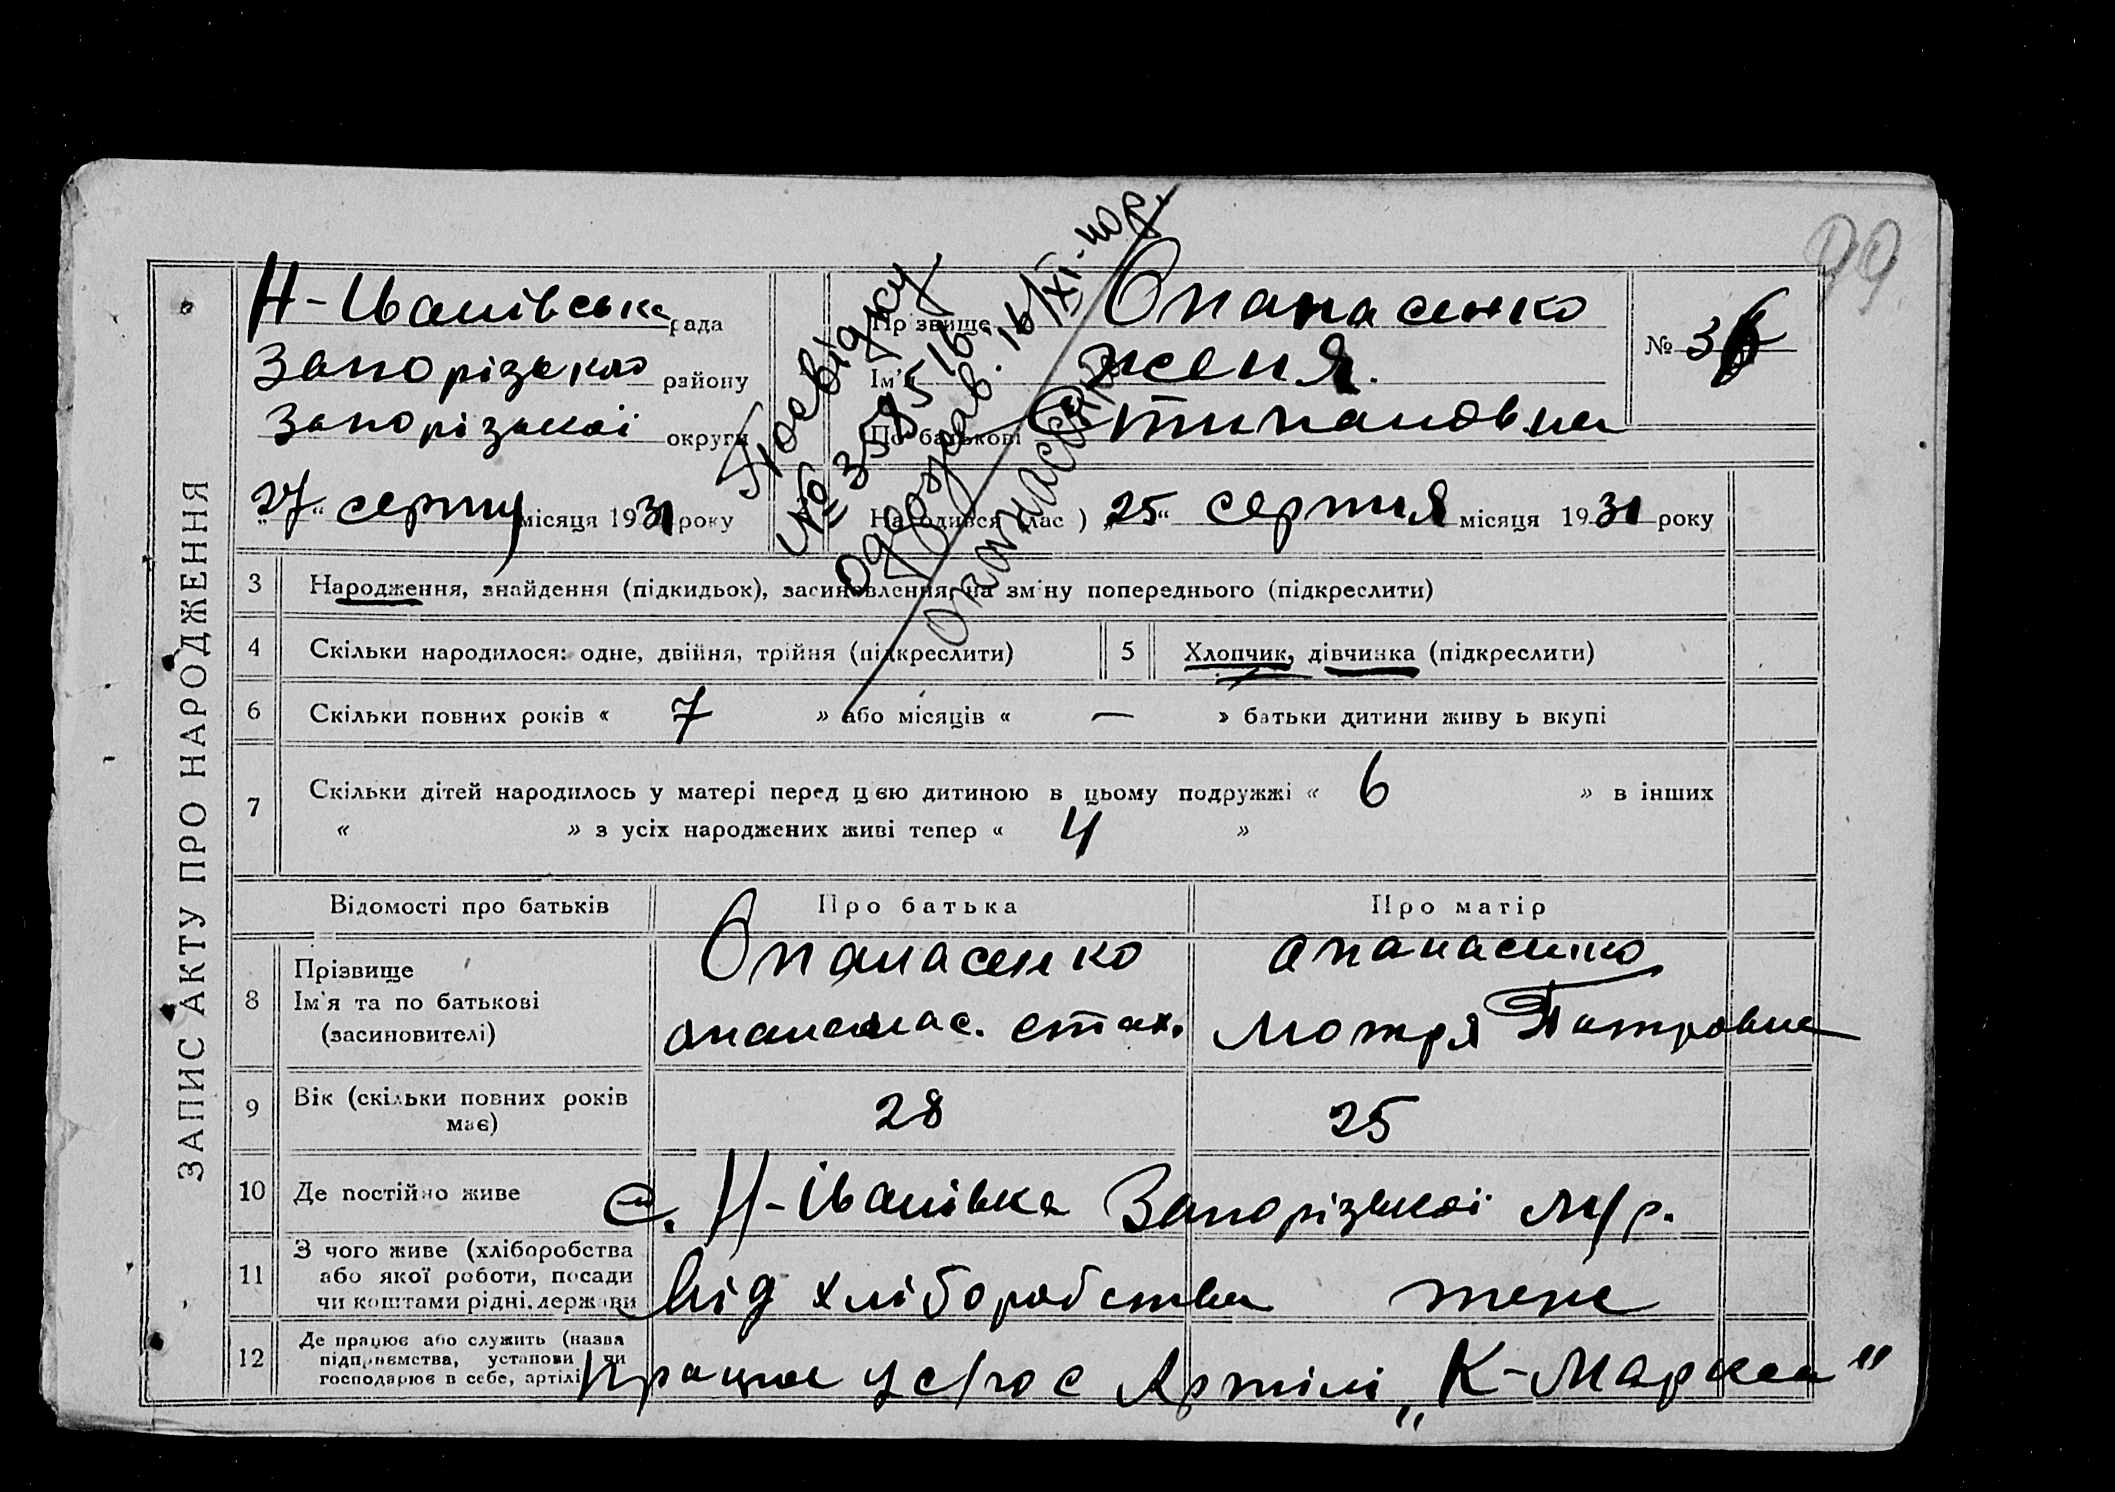 99
ЗАПИС АКТУ ПРО НАРОДЖЕННЯ
Н-Іванівська рада
Запорізького району
Запорізької округи
27 серпня місяця 1931 року
Посвідку
№ 358516
одержав. 16/XI-40р.
Опанасенко
Прізвище Опанасенко
Ім'я Женя.
По батькові Степановна
№ 36
Народився (лас ) „25“ серпня місяця 1931 року
3 Народження, знайдення (підкидьок), засиновлення, на зміну попереднього (підкреслити)
4 Скільки народилося: одне, двійня, трійня (підкреслити)
5 Хлопчик, дівчинка (підкреслити)
6 Скільки повних років « 7 » або місяців « — » батьки дитини живу ь вкупі
7 Скільки дітей народилось у матері перед цією дитиною в цьому подружжі « 6 » в інших
« » з усіх народжених живі тепер « 4 »
Відомості про батьків Про батька Про матір
8 Прізвище
Ім'я та по батькові
(засиновителі)
Опанасенко
стах.
Опанасенко
Мотря Петровна
9 Вік (скільки повних років
має)
28 25
10 Де постійно живе с. Н-Іванівка Запорізької м/р.
11 З чого живе (хліборобства
або якої роботи, посади
чи коштами рідні, держави
від хліборобства теж
12 Де працює або служить (назва
підприємства, установи чи
господарює в себе, артілі
працює у с/гос Артілі „К-Маркса"